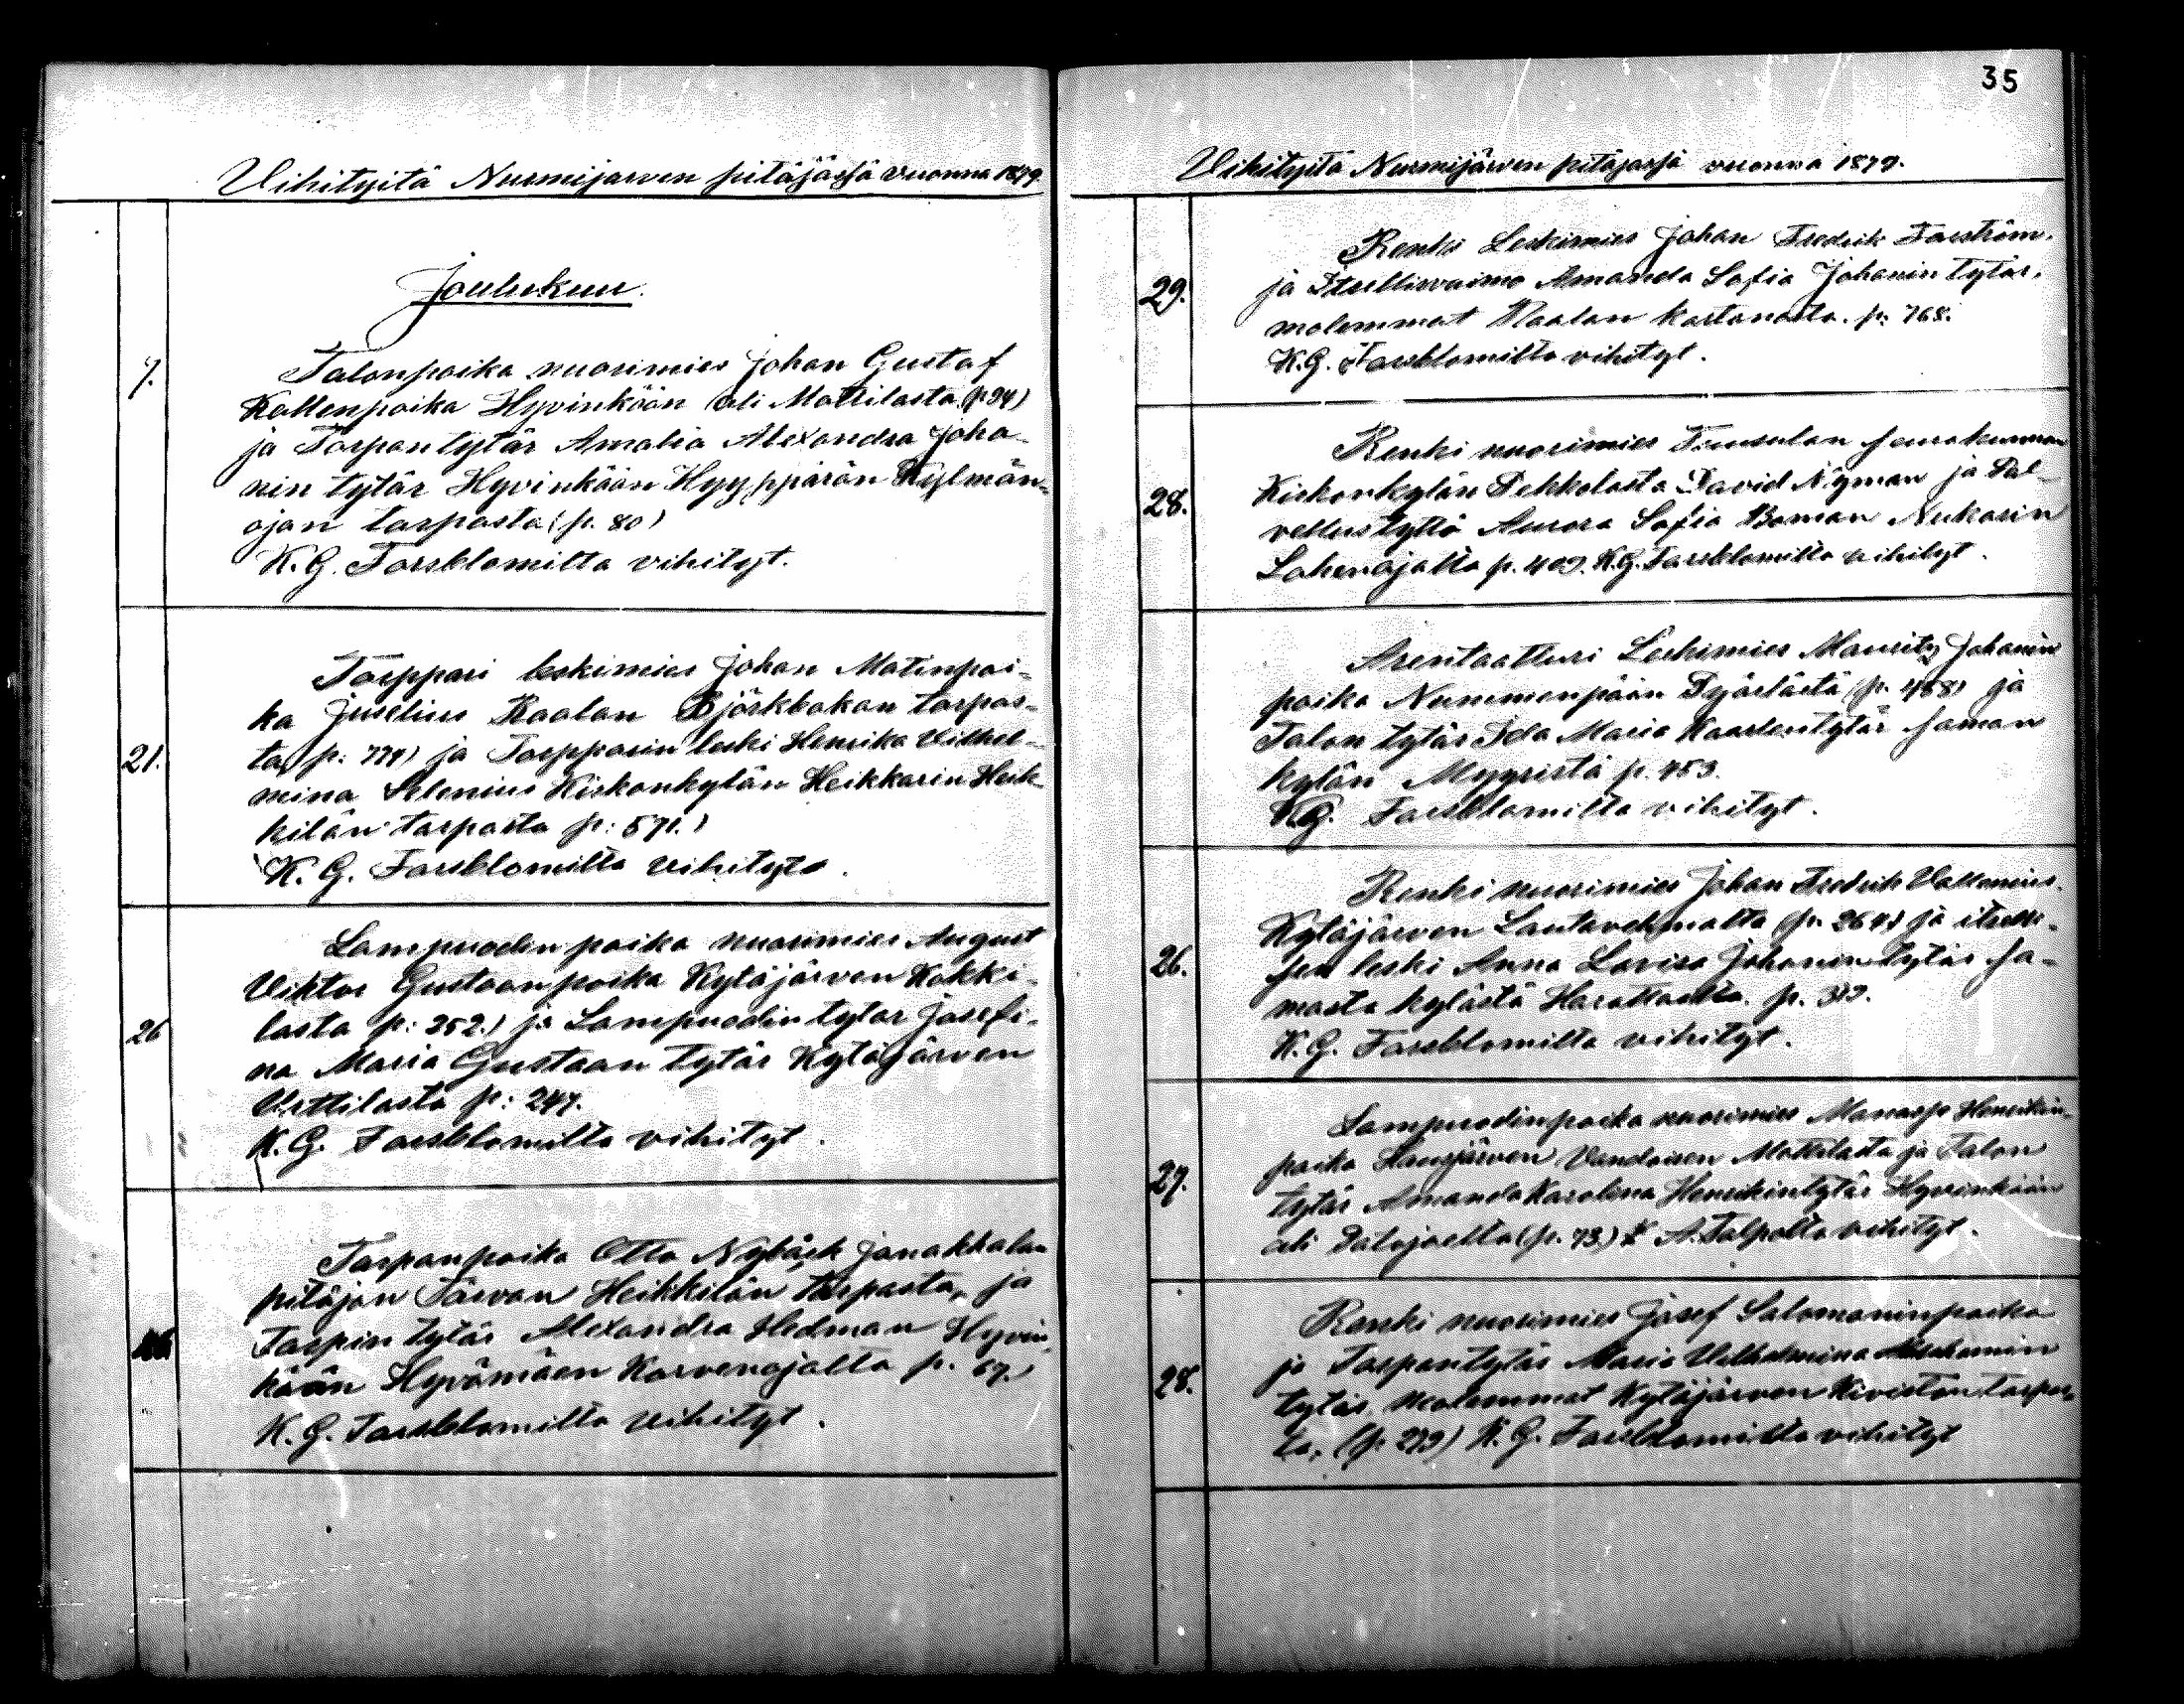 Vihityitä Nurmijarven pitäjässä vuonna 1879
Joulukuu.
7.
Talonpoika nuorimies Johan Gustaf
Kallenpoika Hyvinkään ali Mattilasta (p. 94)
ja Torpantytär Amalia Alexandra Joha-
nin tytär Hyvinkään Hyyppärän Kylmän-
ojan torpasta (p. 80)
K. G. Forsblomilta vihityt.
21.
Torppari leskimies Johan Matinpoi-
ka Juselius Raalan Björkbakan torpas-
ta p: 774) ja Torpparin leski Henrika Vilhel-
mina Selenius Kiskonkylän Heikkarin Heik-
kilän torpasta p: 571.)
K. G. Forsblomilta vihityt.
26
Lampuodin poika nuorimies August
Viktor Gustaan poika Kytäjärven Kokki-
lasta p: 252.) ja Lampuodin tytar Josefi-
na Maria Gustaan tytär Kytäjärven
Verttilasta p: 247.
K. G. Forsblomilta vihityt.
Torpanpoika Otto Nybäck Janakkalan
pitäjän Tervon Heikkilän torpasta, ja
Torpin tytär Alexandra Hedman Hyvin-
kään Hyvämäen Korvenojalta p. 67.)
K. G. Forsblomilta vihityt.
35
Vihityitä Nurmijärven pitäjassä vuonna 1879.
29.
Renki Leskimies Johan Fredrik Forström.
ja Itsellisvaimo Amanda Sofia Johanin tytär,
molemmat Raalan kartanosta. p: 768.
K. G. Forsblomilta vihityt.
28.
Renki nuorimies Tuusulan seurakunnan
Kiskonkylän Pekkolasta David Nyman ja Pal-
vellustyttö Aurora Sofia Boman Nukarin
Lohenojalta p. 409. K. G. Forsblomilta vihityt.
Arentaatturi Leskimies Mauritz Johanin
poika Nummenpään Pyörlästä (p. 468) ja
Talon tytär Ida Maria Kaarlentytär saman
kylän Myyristä p. 453.
K. G. Forsblomilta vihityt.
26.
Renki nuorimies Johan Fredrik
Kytäjärven (p. 264) ja
sen leski Anna Lovisa Johanin tytär sa-
masta kylästä p.
K. G. Forsblomilta vihityt.
27.
Lampuodinpoika nuorimies Henrikin-
poika Hausjärven Mattilasta ja Talon
tytär Amanda Karolina Henrikintytär Hyvinkään
ali Palojoelta (p. 73.) A. Talpolta vihityt.
28.
Renki nuorimies Josef Salomoninpoika
ja Torpantytär Maria Vilhelmina
tytär, molemmat Kytäjärven Kiviston torpas-
ta, (p. 279) K. G. Forsblomilta vihityt